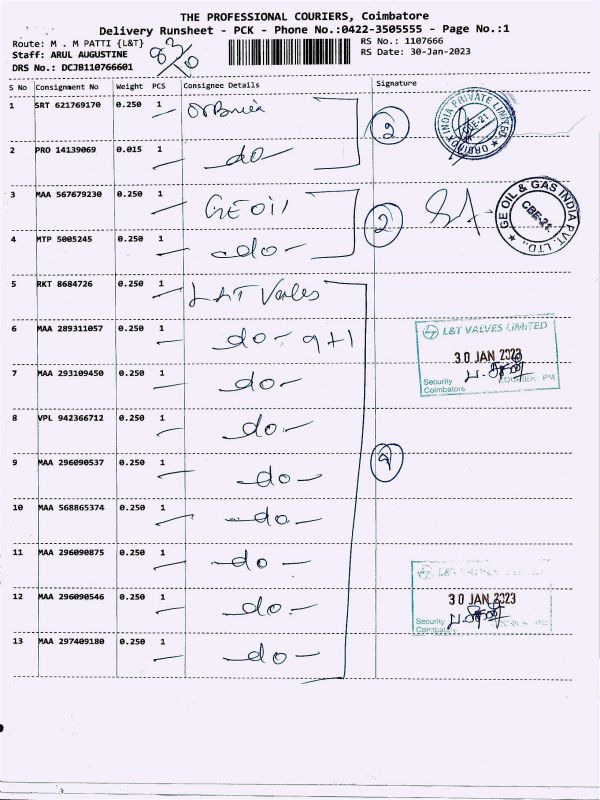 THE PROFESSIONAL COURIERS, Coimbatore
Delivery Runsheet - PCK - Phone No.:0422-3505555 - Page No.:1
Route: M . M PATTI {L&T}
RS No.: 1107666
Staff: ARUL AUGUSTINE
RS Date: 30-Jan-2023
DRS No.: DCJB110766601
S No Consignment No Weight PCS Consignee Details Signature
1 SRT 621769170 0.250 1
ORBINOX INDIA PRIVATE LIMITED
CBE-21
2 PRO 14139069 0.015 1 do
2
3 MAA 567679230 0.250 1 GE OIl
2
GE OIL & GAS INDIA PVT. LTD.,
CBE-21.
4 MTP 5005245 0.250 1 do
5 RKT 8684726 0.250 1 L&T Valves
6 MAA 289311057 0.250 1 do - 9+1
L&T VALVES LIMITED
30 JAN 2023
Security COURIER PM
Coimbatore
7 MAA 293109450 0.250 1 do
8 VPL 942366712 0.250 1 do
9 MAA 296090537 0.250 1 do
9
10 MAA 568865374 0.250 1 do
11 MAA 296090875 0.250 1 do
L&T
12 MAA 296090546 0.250 1 do
30 JAN 2023
Security
Coimbatore
13 MAA 297409180 0.250 1 do